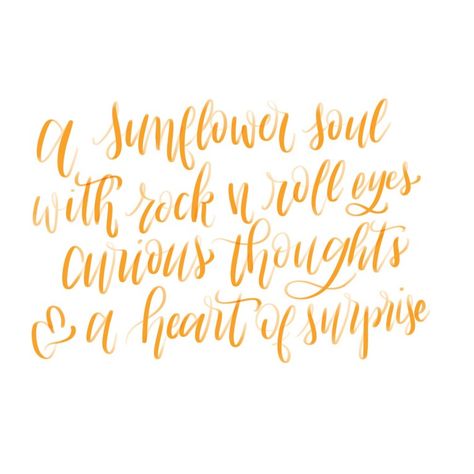 a sunflower soul
with rock n roll eyes
curious thoughts
& a heart of surprise